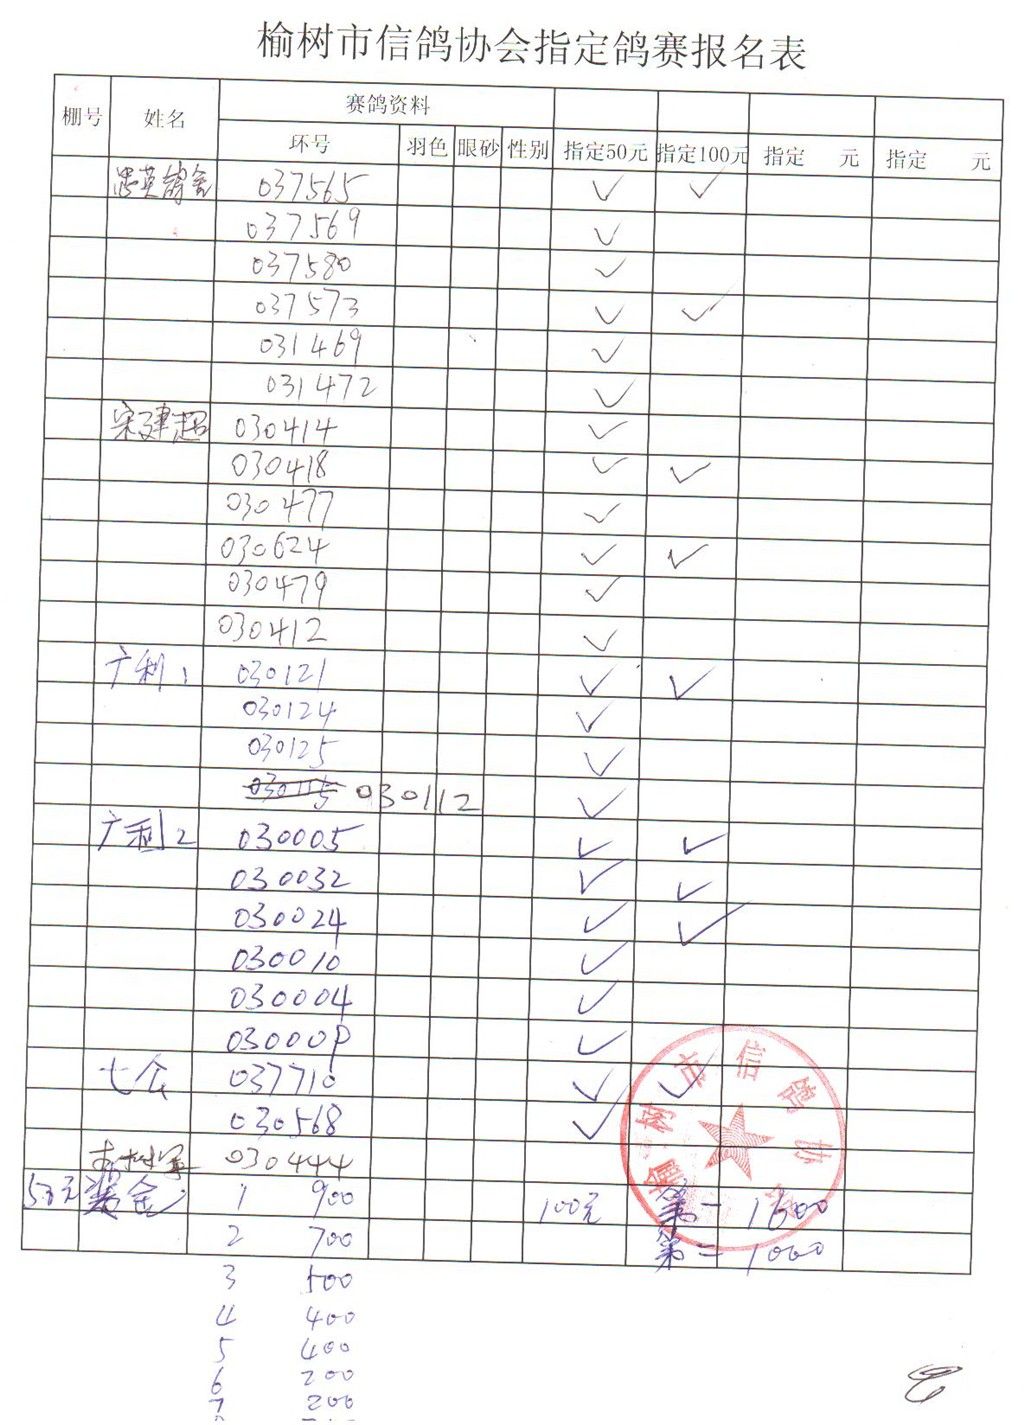 榆树市信鸽协会指定鸽赛报名表
棚号 姓名 赛鸽资料
环号 羽色 眼砂 性别 指定50元 指定100元 指定 元 指定 元
英鸽舍 037565 ✓ ✓
037569 ✓
037580 ✓
037573 ✓ ✓
031469 ✓
031472 ✓
宋建超 030414 ✓
030418 ✓ ✓
030477 ✓
030624 ✓ ✓
030479 ✓
030412 ✓
广利1 030121 ✓ ✓
030124 ✓
030125 ✓
030112 ✓
广利2 030005 ✓ ✓
030032 ✓ ✓
030024 ✓ ✓
030010 ✓
030004 ✓
03000P ✓
七仓 037710 ✓ ✓
030568 ✓
030444
50元奖金 1 900 100元 第一 1600
2 700 第二 1000
3 500
4 400
5 400
6 200
7 200
榆树市信鸽协会